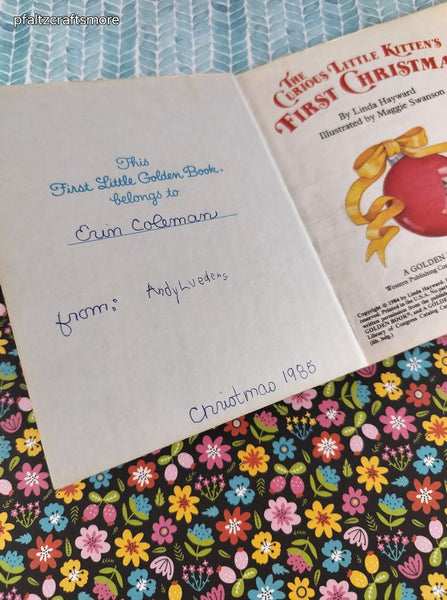 pfaltzcraftsmore
This
First Little Golden Book®
belongs to
Erin Coleman
from: Andy Lueders
Christmas 1985
THE
CURIOUS LITTLE KITTEN'S
FIRST CHRISTMA
By Linda Hayward
Illustrated by Maggie Swanson
A GOLDEN
Western Publishing Com
Copyright © 1984 by Linda Hayward.
reserved. Printed in the U.S.A. No part
written permission from the
GOLDEN BOOK®, and A GOLD
Library of Congress Catalog Car
(lib. bdg.)